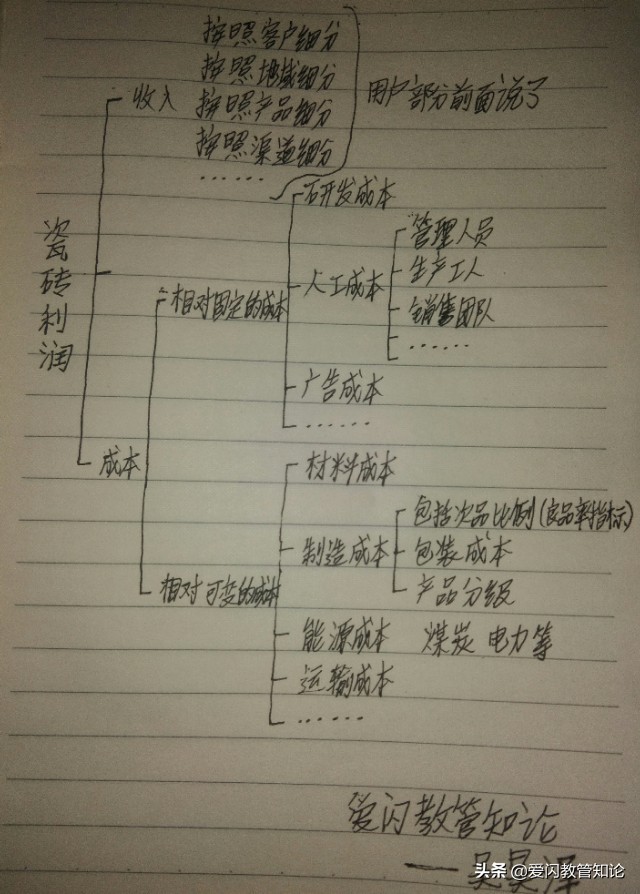 按照客户细分
按照地域细分
收入 按照产品细分 用户部分前面说了
按照渠道细分
……
瓷砖利润
成本
相对固定的成本
石开发成本
人工成本
管理人员
生产工人
销售团队
……
广告成本
……
相对可变的成本
材料成本
制造成本
包括次品比例(良品率指标)
包装成本
产品分级
能源成本 煤炭 电力等
运输成本
……
爱闪教管知论
——吴昊
头条 @爱闪教管知论